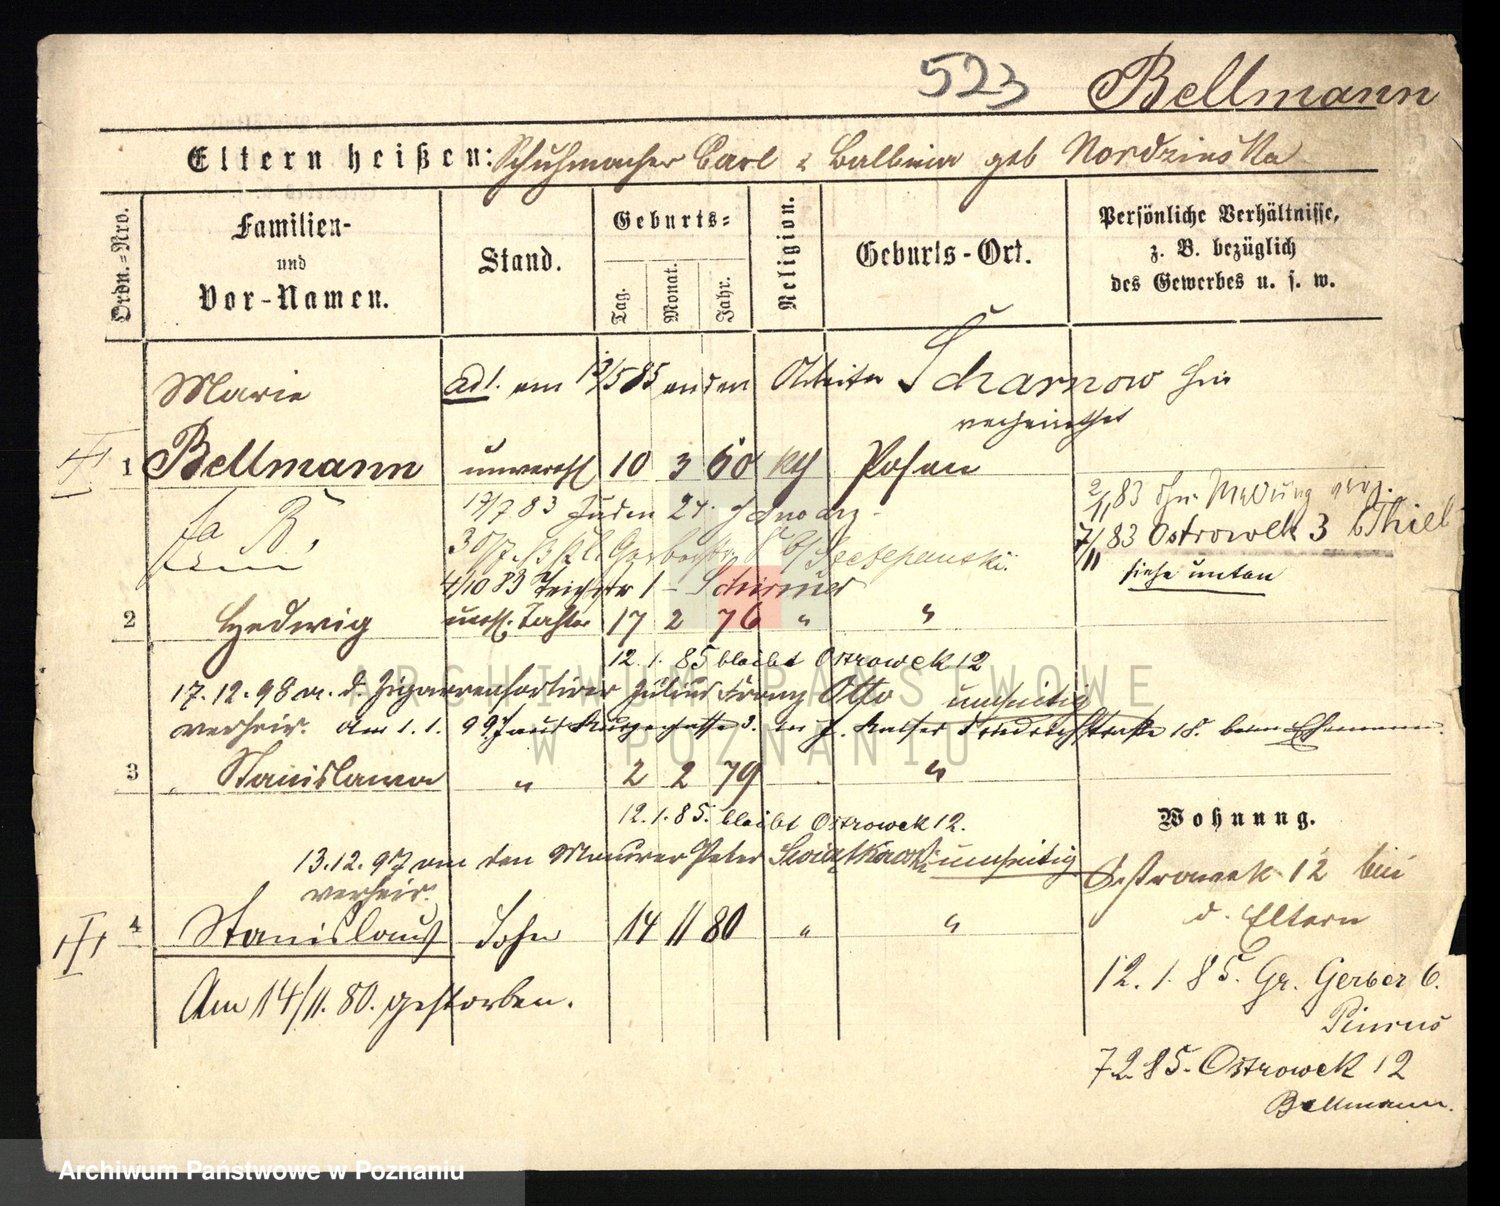 523 Bellmann
Eltern heißen: Schuhmacher Carl & Balbina geb Nordzinska
Ordn.=Nro.
Familien-
und
Vor-Namen.
Stand.
Geburts=
Tag.
Monat.
Jahr.
Religion.
Geburts-Ort.
Persönliche Verhältnisse,
z. B. bezüglich
des Gewerbes u. s. w.
Marie ad 1. am 19/5 85 an den Arbeiter Scharnow hier
verheirathet
1 Bellmann unverehl 10 3 60 kth Posen
17/7 83 Juden 27.
2/11 83 ohne Meldung
7/11 83 Ostrowek 3 b Thiel
siehe unten
30/7. Gerberstr Szczepanski.
4/10 83 Teichstr 1 - Schirmer
2 Hedwig unehl. Tochter 17 2 76 " "
12. 1. 85 bleibt Ostrowek 12
17. 12. 98 m. d. Zigarrensortirer Julius Franz Otto umseitig
verheir. Am 1. 1. 99 aus 3. n. Kaiser Friedrichstraße 18. beim Ehemann.
3 Stanislawa " 2 2 79 "
12. 1. 85. bleibt Ostrowek 12.
13. 12. 97 an den Maurer Peter Swiatkowski umseitig
verheir.
4 Stanislaus Sohn 14 11 80 " "
Am 14/11. 80. gestorben.
Wohnung.
Ostrowek 12 bei
d. Eltern
12. 1. 85. Gr. Gerber 6.
Pincus
7 2 85. Ostrowek 12
Bellmann.
ARCHIWUM PAŃSTWOWE
W POZNANIU
Archiwum Państwowe w Poznaniu